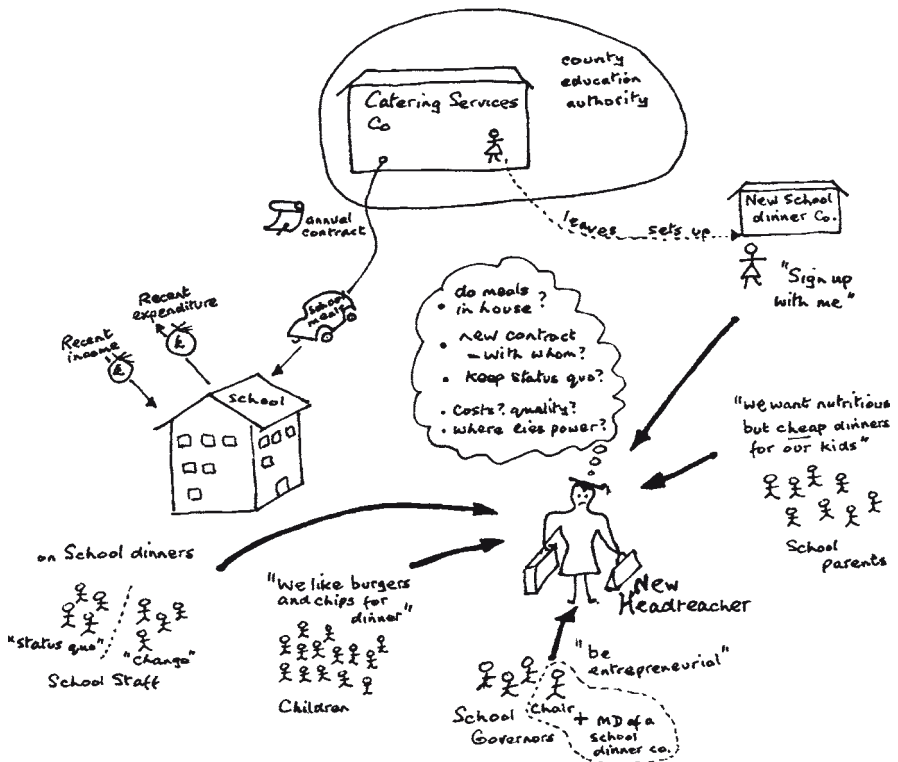 county
education
authority
Catering Services
Co
annual
contract
leaves sets up
New School
dinner Co.
"Sign up
with me"
School
meals
Recent
expenditure
Recent
income
£
£
School
• do meals
in house?
• new contract
– with whom?
• keep status quo?
• costs? quality?
• where lies power?
"We want nutritious
but cheap dinners
for our kids"
School
parents
on School dinners
"Status quo"
"Change"
School Staff
"We like burgers
and chips for
dinner"
Children
New
Headteacher
"be
entrepreneurial"
School
Governors
Chair
+ MD of a
school
dinner co.